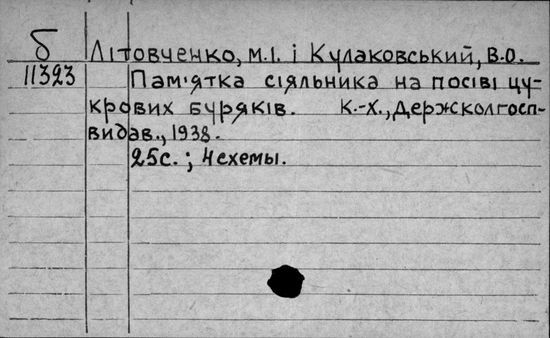 б Літовченко, М.І. і Кулаковський, В.О.
11323 Пам'ятка сіяльника на посіві цу-
крових буряків. К.-Х., Держколгосп-
видав., 1938.
25с.; 4 схемы.